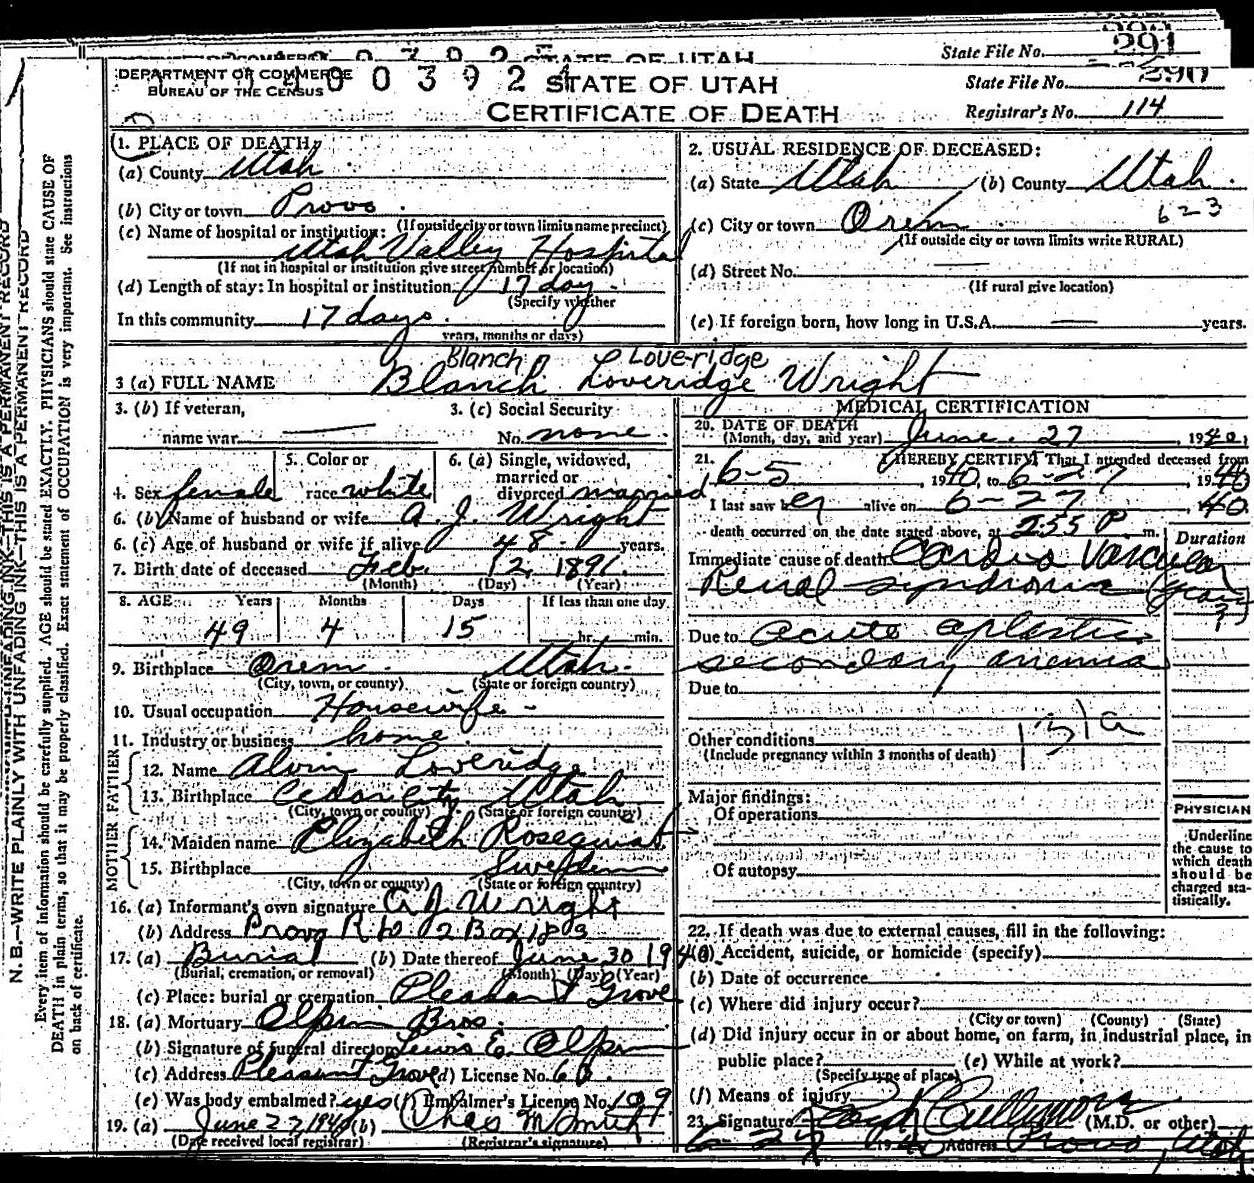 State File No. 291
STATE OF UTAH
DEPARTMENT OF COMMERCE
BUREAU OF THE CENSUS
00392
STATE OF UTAH
CERTIFICATE OF DEATH
State File No. 290
Registrar's No. 114
N. B.—WRITE PLAINLY WITH UNFADING INK—THIS IS A PERMANENT RECORD
Every item of information should be carefully supplied. AGE should be stated EXACTLY. PHYSICIANS should state CAUSE OF
DEATH in plain terms, so that it may be properly classified. Exact statement of OCCUPATION is very important. See instructions
on back of certificate.
1. PLACE OF DEATH:
(a) County Utah
(b) City or town Provo
(If outside city or town limits name precinct)
(c) Name of hospital or institution:
Utah Valley Hospital
(If not in hospital or institution give street number or location)
(d) Length of stay: In hospital or institution 17 day.
(Specify whether
In this community 17 days.
years, months or days)
2. USUAL RESIDENCE OF DECEASED:
(a) State Utah (b) County Utah.
623
(c) City or town Orem
(If outside city or town limits write RURAL)
(d) Street No.
(If rural give location)
(e) If foreign born, how long in U.S.A. — years.
Blanch Loveridge
3 (a) FULL NAME Blanch Loveridge Wright
3. (b) If veteran,
name war
3. (c) Social Security
No. none.
4. Sex female
5. Color or
race white
6. (a) Single, widowed,
married or
divorced married
6. (b) Name of husband or wife A. J. Wright
6. (c) Age of husband or wife if alive 48. years.
7. Birth date of deceased Feb. 12, 1891.
(Month) (Day) (Year)
8. AGE Years Months Days If less than one day
49 4 15 hr. min.
9. Birthplace Orem. Utah.
(City, town, or county) (State or foreign country)
10. Usual occupation Housewife -
11. Industry or business home.
FATHER
12. Name Alvin Loveridge
13. Birthplace Cedar City Utah
(City, town or county) (State or foreign country)
MOTHER
14. Maiden name Elizabeth Rosequist
15. Birthplace Sweden
(City, town or county) (State or foreign country)
16. (a) Informant's own signature A J Wright
(b) Address Provo R 2 Box 183
17. (a) Burial (b) Date thereof June 30 1940
(Burial, cremation, or removal) (Month) (Day) (Year)
(c) Place: burial or cremation Pleasant Grove
18. (a) Mortuary Olpin Bros.
(b) Signature of funeral director Lewis E. Olpin
(c) Address Pleasant Grove (d) License No. 60.
(e) Was body embalmed? yes (f) Embalmer's License No. 109
19. (a) June 27 1940 (b) Chas M Smith
(Date received local registrar) (Registrar's signature)
MEDICAL CERTIFICATION
20. DATE OF DEATH
(Month, day, and year) June. 27, 1940.
21. I HEREBY CERTIFY, That I attended deceased from
6-5, 1940, to 6-27, 1940
I last saw her alive on 6-27, 1940.
death occurred on the date stated above, at 2:55 P. m.
Duration
Immediate cause of death Cardio Vascular
Renal syndrome
Due to acute aplastic
secondary anemia
Due to
131a
Other conditions
(Include pregnancy within 3 months of death)
Major findings:
Of operations
Of autopsy
PHYSICIAN
Underline
the cause to
which death
should be
charged sta-
tistically.
22. If death was due to external causes, fill in the following:
(a) Accident, suicide, or homicide (specify)
(b) Date of occurrence
(c) Where did injury occur?
(City or town) (County) (State)
(d) Did injury occur in or about home, on farm, in industrial place, in
public place? (e) While at work?
(Specify type of place)
(f) Means of injury
23. Signature Cullimore (M.D. or other)
6-27 1940 Address Provo, Utah